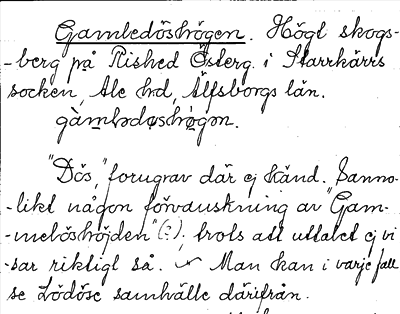 Gambedöshögen. Högt skogs-
-berg på Rished Österg. i Starrkärrs
socken, Ale hd, Älfsborgs län.
gàmbədøshǿgən.
"Dös," forngrav där ej känd. Sanno-
-likt någon förvanskning av "Gam-
-melöshöjden" (?), trots att uttalet ej vi
-sar riktigt så. Man kan i varje fall
se Lödöse samhälle därifrån.